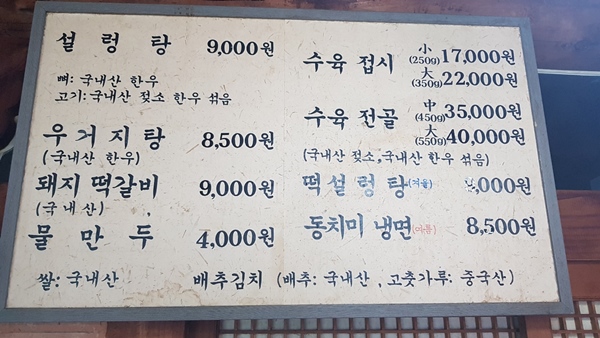 설렁탕 9,000원
뼈: 국내산 한우
고기: 국내산 젖소 한우 섞음
우거지탕 8,500원
(국내산 한우)
돼지 떡갈비 9,000원
(국내산)
물만두 4,000원
수육 접시 小(250g) 17,000원
大(350g) 22,000원
수육 전골 中(450g) 35,000원
大(550g) 40,000원
(국내산 젖소, 국내산 한우 섞음)
떡설렁탕(겨울) ,000원
동치미 냉면(여름) 8,500원
쌀: 국내산 배추김치 (배추: 국내산, 고춧가루: 중국산)